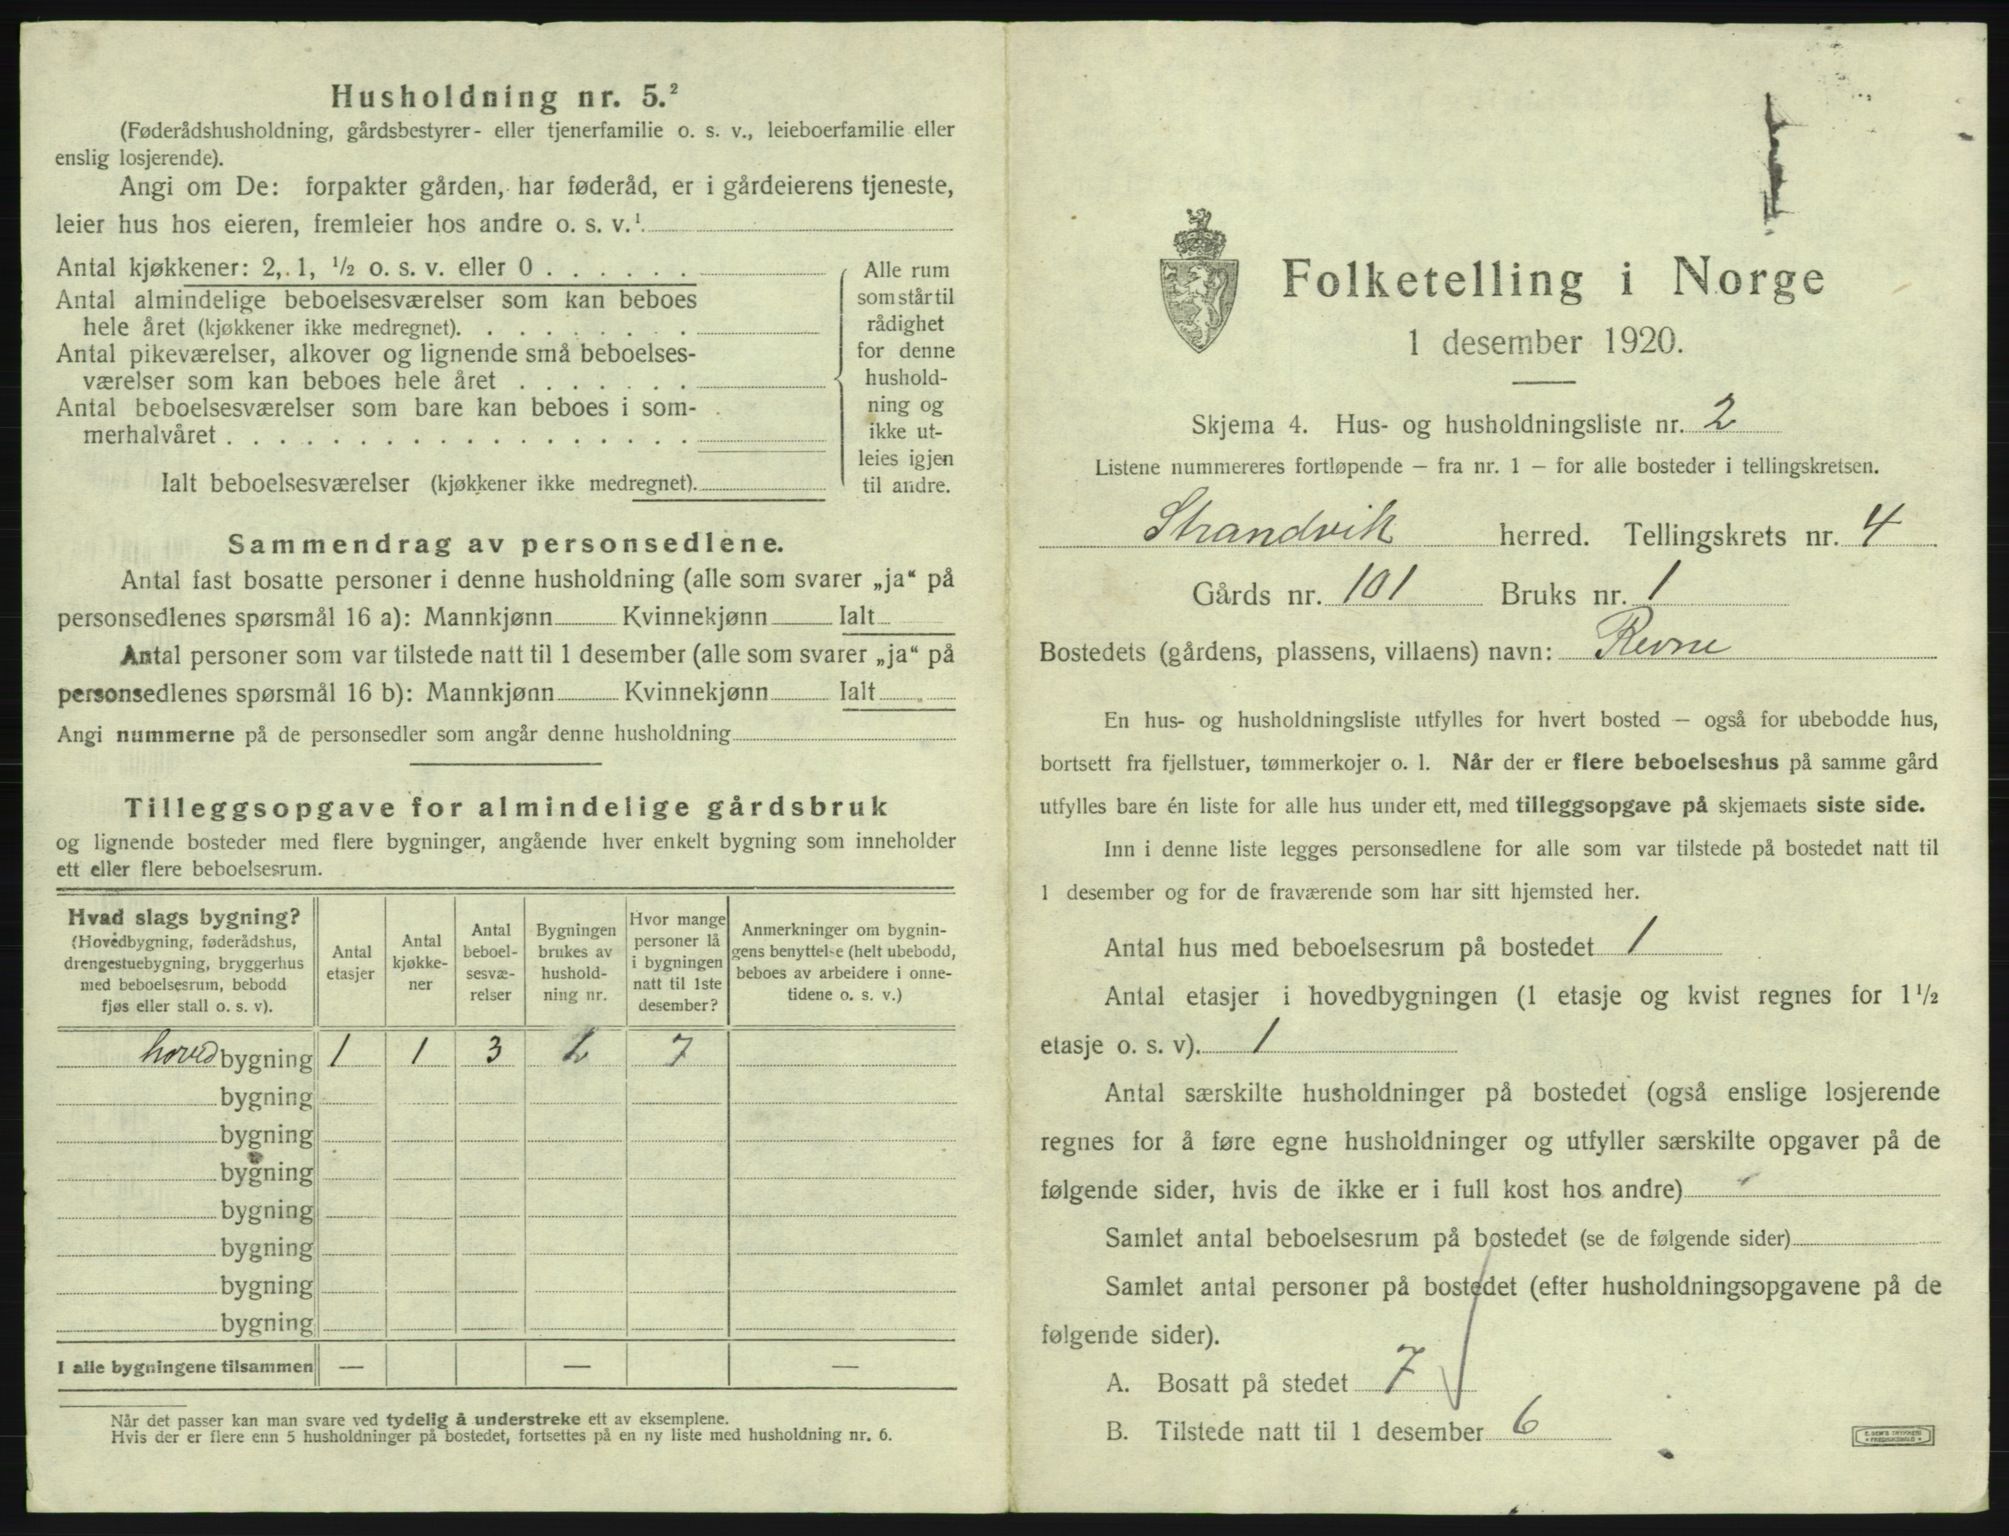 Husholdning nr. 5.²
(Føderådshusholdning, gårdsbestyrer- eller tjenerfamilie o. s. v., leieboerfamilie eller
enslig losjerende).
Angi om De: forpakter gården, har føderåd, er i gårdeierens tjeneste,
leier hus hos eieren, fremleier hos andre o. s. v.¹
Antal kjøkkener: 2, 1, ½ o. s. v. eller 0 . . . . . .
Antal almindelige beboelsesværelser som kan beboes
hele året (kjøkkener ikke medregnet). . . . . . . . .
Antal pikeværelser, alkover og lignende små beboelses-
værelser som kan beboes hele året . . . . . . .
Antal beboelsesværelser som bare kan beboes i som-
merhalvåret . . . . . . . . . . . . . . . . . .
Ialt beboelsesværelser (kjøkkener ikke medregnet).
Alle rum
som står til
rådighet
for denne
hushold-
ning og
ikke ut-
leies igjen
til andre.
Sammendrag av personsedlene.
Antal fast bosatte personer i denne husholdning (alle som svarer „ja“ på
personsedlenes spørsmål 16 a): Mannkjønn Kvinnekjønn Ialt
Antal personer som var tilstede natt til 1 desember (alle som svarer „ja“ på
personsedlenes spørsmål 16 b): Mannkjønn Kvinnekjønn Ialt
Angi nummerne på de personsedler som angår denne husholdning
Tilleggsopgave for almindelige gårdsbruk
og lignende bosteder med flere bygninger, angående hver enkelt bygning som inneholder
ett eller flere beboelsesrum.
Hvad slags bygning?
(Hovedbygning, føderådshus,
drengestuebygning, bryggerhus
med beboelsesrum, bebodd
fjøs eller stall o. s. v).
Antal
etasjer
Antal
kjøkke-
ner
Antal
beboel-
sesvæ-
relser
Bygningen
brukes av
hushold-
ning nr.
Hvor mange
personer lå
i bygningen
natt til 1ste
desember?
Anmerkninger om bygnin-
gens benyttelse (helt ubebodd,
beboes av arbeidere i onne-
tidene o. s. v.)
hoved bygning 1 1 3 7
bygning
bygning
bygning
bygning
bygning
bygning
bygning
I alle bygningene tilsammen — — —
Når det passer kan man svare ved tydelig å understreke ett av eksemplene.
Hvis der er flere enn 5 husholdninger på bostedet, fortsettes på en ny liste med husholdning nr. 6.
Folketelling i Norge
1 desember 1920.
Skjema 4. Hus- og husholdningsliste nr. 2
Listene nummereres fortløpende — fra nr. 1 — for alle bosteder i tellingskretsen.
Strandvik herred. Tellingskrets nr. 4
Gårds nr. 101 Bruks nr. 1
Bostedets (gårdens, plassens, villaens) navn: Revne
En hus- og husholdningsliste utfylles for hvert bosted — også for ubebodde hus,
bortsett fra fjellstuer, tømmerkojer o. l. Når der er flere beboelseshus på samme gård
utfylles bare én liste for alle hus under ett, med tilleggsopgave på skjemaets siste side.
Inn i denne liste legges personsedlene for alle som var tilstede på bostedet natt til
1 desember og for de fraværende som har sitt hjemsted her.
Antal hus med beboelsesrum på bostedet 1
Antal etasjer i hovedbygningen (1 etasje og kvist regnes for 1½
etasje o. s. v). 1
Antal særskilte husholdninger på bostedet (også enslige losjerende
regnes for å føre egne husholdninger og utfyller særskilte opgaver på de
følgende sider, hvis de ikke er i full kost hos andre)
Samlet antal beboelsesrum på bostedet (se de følgende sider)
Samlet antal personer på bostedet (efter husholdningsopgavene på de
følgende sider).
A. Bosatt på stedet 7
B. Tilstede natt til 1 desember 6